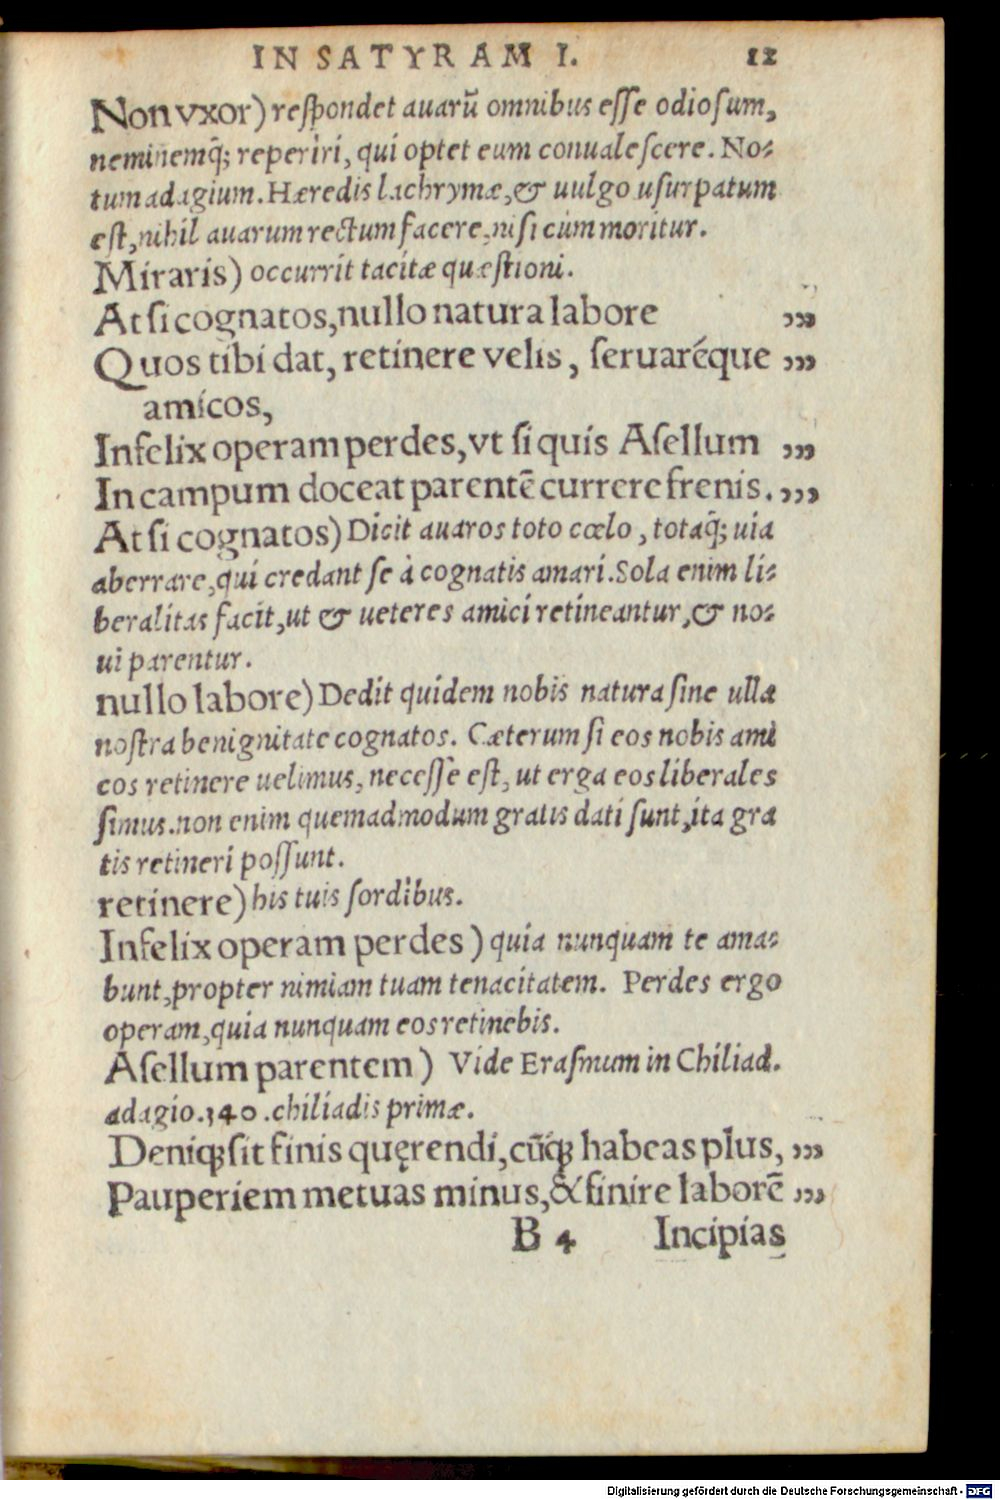 IN SATYRAM I. 12
Non vxor) reſpondet auarũ omnibus eſſe odioſum,
neminemq̃; reperiri, qui optet eum conualeſcere. No⸗
tum adagium. Hæredis lachrymæ, & uulgo uſurpatum
eſt, nihil auarum rectum facere, niſi cùm moritur.
Miraris) occurrit tacitæ quæſtioni.
At ſi cognatos, nullo natura labore ,,,
Quos tibi dat, retinere velis, ſeruaréque ,,,
amicos,
Infelix operam perdes, vt ſi quis Aſellum ,,,
In campum doceat parentẽ currere frenis. ,,,
At ſi cognatos) Dicit auaros toto cœlo, totaq̃; uia
aberrare, qui credant ſe à cognatis amari. Sola enim li⸗
beralitas facit, ut & ueteres amici retineantur, & no⸗
ui parentur.
nullo labore) Dedit quidem nobis natura ſine ulla
noſtra benignitate cognatos. Cæterum ſi eos nobis ami
cos retinere uelimus, neceſſe eſt, ut erga eos liberales
ſimus. non enim quemadmodum gratis dati ſunt, ita gra
tis retineri poſſunt.
retinere) his tuis ſordibus.
Infelix operam perdes) quia nunquam te ama⸗
bunt, propter nimiam tuam tenacitatem. Perdes ergo
operam, quia nunquam eos retinebis.
Aſellum parentem) Vide Eraſmum in Chiliad.
adagio. 340. chiliadis primæ.
Deniq; ſit finis quęrendi, cũq; habeas plus, ,,,
Pauperiem metuas minus, & finire laborẽ ,,,
B 4 Incipias
Digitalisierung gefördert durch die Deutsche Forschungsgemeinschaft - DFG